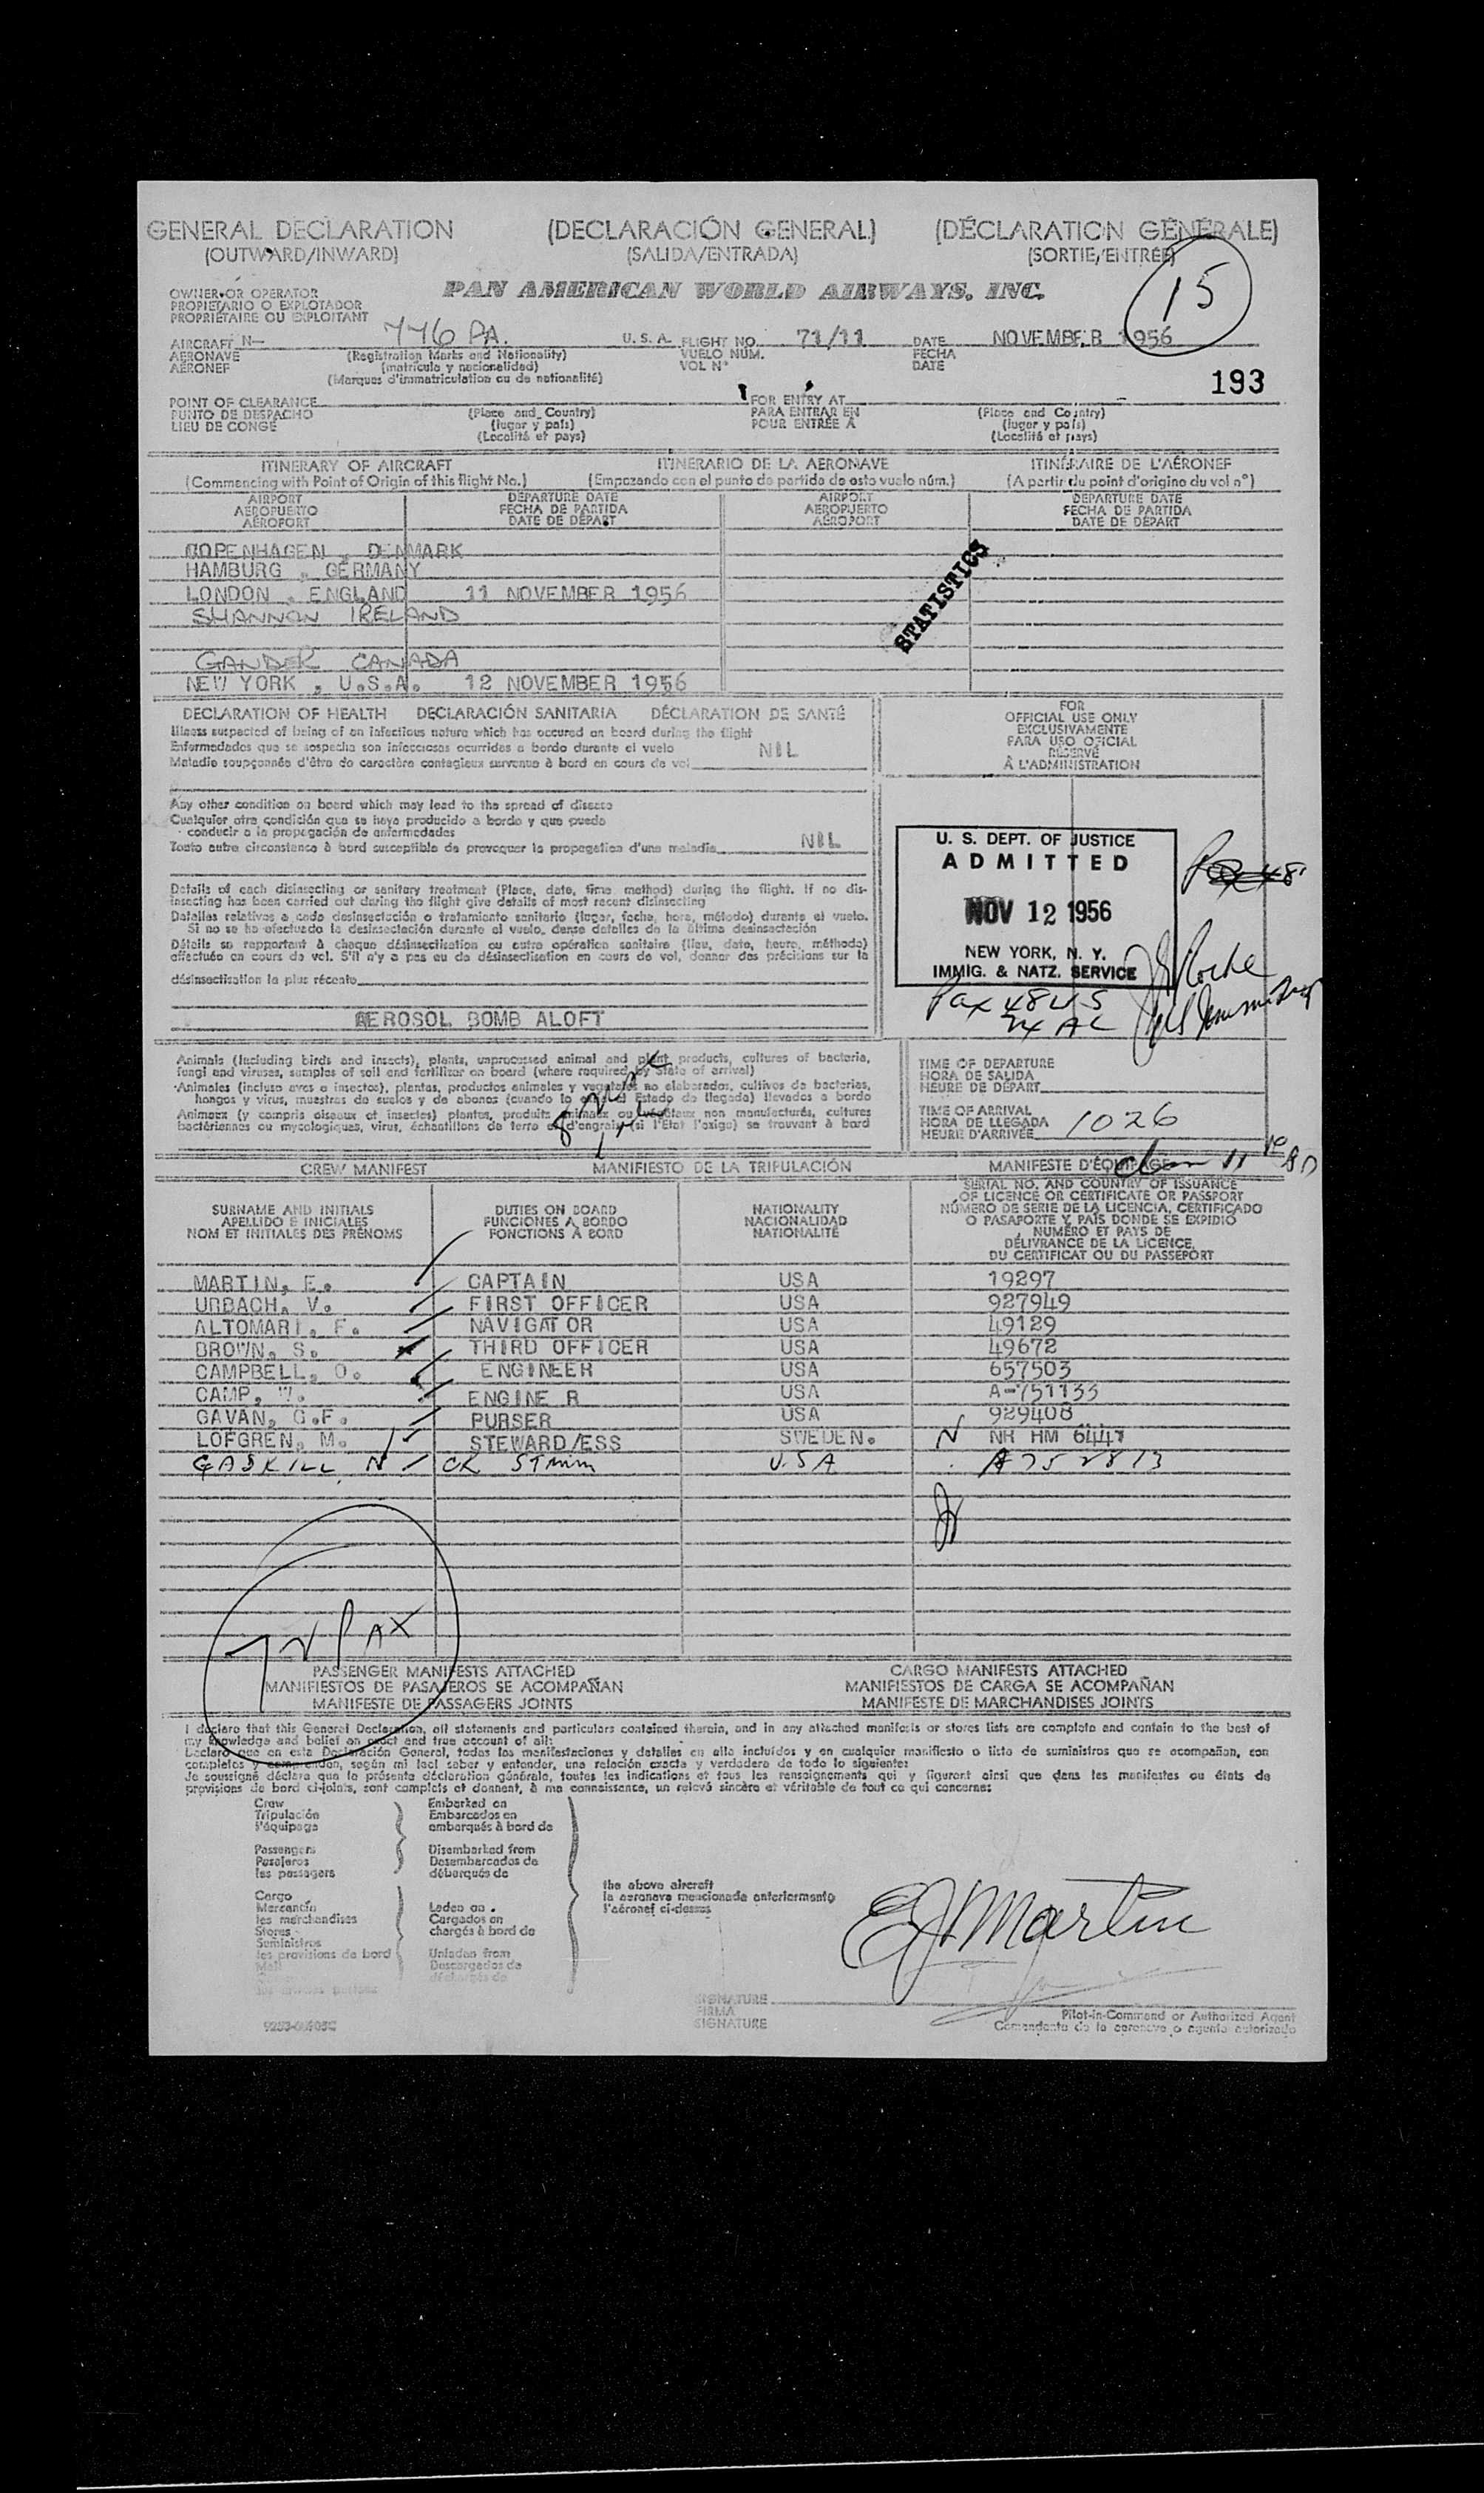 GENERAL DECLARATION (DECLARACIÓN GENERAL) (DÉCLARATION GÉNÉRALE)
(OUTWARD/INWARD) (SALIDA/ENTRADA) (SORTIE/ENTRÉE)
15
OWNER OR OPERATOR
PROPIETARIO O EXPLOTADOR
PROPRIÉTAIRE OU EXPLOITANT
PAN AMERICAN WORLD AIRWAYS, INC.
AIRCRAFT N— 776 PA. U.S.A. FLIGHT NO. 71/11 DATE NOVEMBER 1956
AERONAVE (Registration Marks and Nationality) VUELO NÚM. FECHA
AÉRONEF (matrícula y nacionalidad) VOL N° DATE
(Marques d'immatriculation ou de nationalité)
193
POINT OF CLEARANCE FOR ENTRY AT
PUNTO DE DESPACHO (Place and Country) PARA ENTRAR EN (Place and Country)
LIEU DE CONGÉ (lugar y país) POUR ENTRÉE A (lugar y país)
(Localité et pays) (Localité et pays)
ITINERARY OF AIRCRAFT ITINERARIO DE LA AERONAVE ITINÉRAIRE DE L'AÉRONEF
(Commencing with Point of Origin of this flight No.) (Empezando con el punto de partida de este vuelo núm.) (A partir du point d'origine du vol n°)
AIRPORT DEPARTURE DATE AIRPORT DEPARTURE DATE
AEROPUERTO FECHA DE PARTIDA AEROPUERTO FECHA DE PARTIDA
AÉROPORT DATE DE DÉPART AÉROPORT DATE DE DÉPART
COPENHAGEN , DENMARK
HAMBURG , GERMANY
LONDON , ENGLAND 11 NOVEMBER 1956
SHANNON IRELAND
GANDER CANADA
NEW YORK , U.S.A. 12 NOVEMBER 1956
STATISTICS
DECLARATION OF HEALTH DECLARACIÓN SANITARIA DÉCLARATION DE SANTÉ
Illness suspected of being of an infectious nature which has occured on board during the flight
Enfermedades que se sospecha son infecciosas ocurridas a bordo durante el vuelo
Maladie soupçonnée d'être de caractère contagieux survenue à bord en cours de vol NIL
Any other condition on board which may lead to the spread of disease
Cualquier otra condición que se haya producido a bordo y que pueda
conducir a la propagación de enfermedades
Toute autre circonstance à bord susceptible de provoquer la propagation d'une maladie NIL
Details of each disinsecting or sanitary treatment (Place, date, time, method) during the flight. If no dis-
insecting has been carried out during the flight give details of most recent disinsecting
Detalles relativos a cada desinsectación o tratamiento sanitario (lugar, fecha, hora, método) durante el vuelo.
Si no se ha efectuado la desinsectación durante el vuelo, dense detalles de la última desinsectación
Détails se rapportant à chaque désinsectisation ou autre opération sanitaire (lieu, date, heure, méthode)
effectuée en cours de vol. S'il n'y a pas eu de désinsectisation en cours de vol, donner des précisions sur la
désinsectisation la plus récente
AEROSOL BOMB ALOFT
FOR
OFFICIAL USE ONLY
EXCLUSIVAMENTE
PARA USO OFICIAL
RÉSERVÉ
À L'ADMINISTRATION
U. S. DEPT. OF JUSTICE
ADMITTED
NOV 12 1956
NEW YORK, N. Y.
IMMIG. & NATZ. SERVICE
Pax 48 US
Animals (including birds and insects), plants, unprocessed animal and plant products, cultures of bacteria,
fungi and viruses, samples of soil and fertilizer on board (where required by State of arrival)
Animales (incluso aves o insectos), plantas, productos animales y vegetales no elaborados, cultivos de bacterias,
hongos y virus, muestras de suelos y de abonos (cuando lo exija el Estado de llegada) llevados a bordo
Animaux (y compris oiseaux et insectes) plantes, produits animaux ou végétaux non manufacturés, cultures
bactériennes ou mycologiques, virus, échantillons de terre et d'engrais (si l'État l'exige) se trouvant à bord
TIME OF DEPARTURE
HORA DE SALIDA
HEURE DE DÉPART
TIME OF ARRIVAL
HORA DE LLEGADA
HEURE D'ARRIVÉE 1026
CREW MANIFEST MANIFIESTO DE LA TRIPULACIÓN MANIFESTE D'ÉQUIPAGE
SURNAME AND INITIALS
APELLIDO E INICIALES
NOM ET INITIALES DES PRÉNOMS
DUTIES ON BOARD
FUNCIONES A BORDO
FONCTIONS À BORD
NATIONALITY
NACIONALIDAD
NATIONALITÉ
SERIAL NO. AND COUNTRY OF ISSUANCE
OF LICENCE OR CERTIFICATE OR PASSPORT
NÚMERO DE SERIE DE LA LICENCIA, CERTIFICADO
O PASAPORTE Y PAÍS DONDE SE EXPIDIÓ
NUMÉRO ET PAYS DE
DÉLIVRANCE DE LA LICENCE,
DU CERTIFICAT OU DU PASSEPORT
MARTIN, E. CAPTAIN USA 19297
URBACH, V. FIRST OFFICER USA 927949
ALTOMARI, F. NAVIGATOR USA 49129
BROWN, S. THIRD OFFICER USA 49672
CAMPBELL, O. ENGINEER USA 657503
CAMP, W. ENGINE R USA A-751133
GAVAN, G.F. PURSER USA 929408
LOFGREN, M. STEWARD/ESS SWEDEN. N NR HM 6447
GASKILL, N U.S.A A 752813
72 PAX
PASSENGER MANIFESTS ATTACHED CARGO MANIFESTS ATTACHED
MANIFIESTOS DE PASAJEROS SE ACOMPAÑAN MANIFIESTOS DE CARGA SE ACOMPAÑAN
MANIFESTE DE PASSAGERS JOINTS MANIFESTE DE MARCHANDISES JOINTS
I declare that this General Declaration, all statements and particulars contained therein, and in any attached manifests or stores lists are complete and contain to the best of
my knowledge and belief an exact and true account of all:
Declaro que en esta Declaración General, todas las manifestaciones y detalles en ella incluídos y en cualquier manifiesto o lista de suministros que se acompañan, son
completos y comprenden, según mi leal saber y entender, una relación exacta y verdadera de todo lo siguiente:
Je soussigné déclare que la présente déclaration générale, toutes les indications et tous les renseignements qui y figurent ainsi que dans les manifestes ou états de
provisions de bord ci-joints, sont complets et donnent, à ma connaissance, un relevé sincère et véritable de tout ce qui concerne:
Crew
Tripulación
l'équipage
Passengers
Pasajeros
les passagers
Cargo
Mercancía
les marchandises
Stores
Suministros
les provisions de bord
Mail
Embarked on
Embarcados en
embarqués à bord de
Disembarked from
Desembarcados de
débarqués de
Laden on
Cargados en
chargés à bord de
Unladen from
Descargados de
déchargés de
the above aircraft
la aeronave mencionada anteriormente
l'aéronef ci-dessus
EJ Martin
SIGNATURE
FIRMA
SIGNATURE
Pilot-in-Command or Authorized Agent
Comandante de la aeronave o agente autorizado